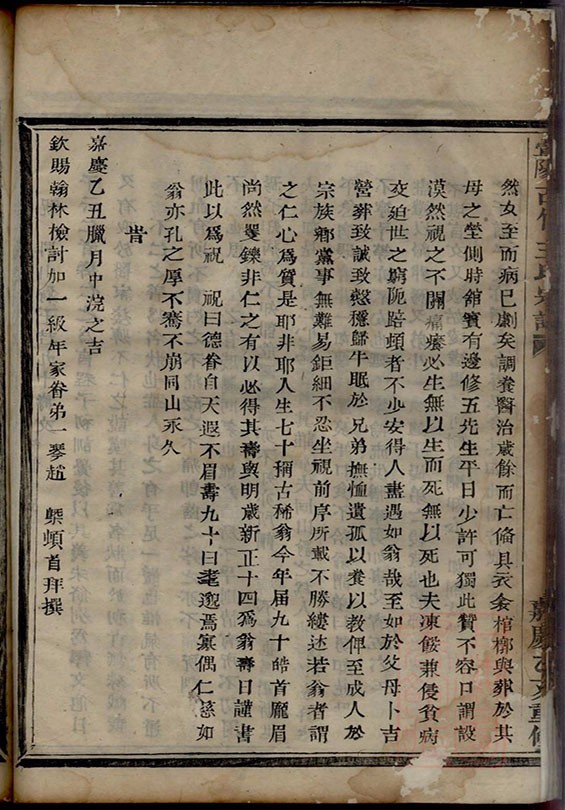 然女至而病巳劇矣調養醫治歲餘而亡偹具衣衾棺槨與葬於其
母之塋側時舘賓有邊修五先生平日少許可獨此賛不容口謂設
漠然視之不關痛癢必生無以生而死無以死也夫凍餒兼侵貧病
交迫世之窮阨踣頓者不少安得人盡遇如翁哉至如於父母卜吉
營葬致誠致慤穩歸牛眠於兄弟撫恤遺孤以養以教俾至成人於
宗族鄉黨事無難易鉅細不忍坐視前序所載不勝縷述若翁者謂
之仁心為質是耶非耶人生七十稱古稀翁今年届九十皓首龎眉
尚然矍鑠非仁之有以必得其壽與明歲新正十四爲翁壽日謹書
此以爲祝　祝曰德眷自天遐不眉壽九十曰耄邈焉寡偶仁慈如
翁亦孔之厚不騫不崩同山永久
旹
嘉慶乙丑臘月中浣之吉
欽賜翰林檢討加一級年家眷弟一琴趙　槼頓首拜撰
嘉慶乙丑重修